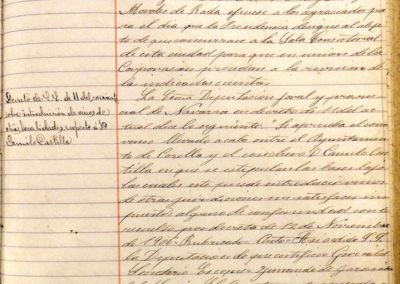 Morales de Rada oficiese a los agraciados pa-
ra el dia que la Presidencia tenga al objeto
de que concurran a la Sala Consistorial
de esta ciudad para que en union de la
Corporación procedan a la revision de
las indicadas cuentas.
Decreto de S.E. de 11 del corriente
sobre introducción de vinos de
otras localidades, respecto á D.
Camilo Castilla.
La Excma Diputacion foral y provin-
cial de Navarra en decreto de 11 del ac-
tual dice lo siguiente. Se aprueba el con-
venio llevado a cabo entre el Ayuntamien-
to de Corella y el cosechero D. Camilo Cas-
tilla en que se estipulan las bases bajo
las cuales este puede introducir vinos
de otras jurisdiciones sin satisfacer im-
puesto alguno de conformidad con lo
resuelto por decreto de 12 de Noviembre
de 1906.
la Diputacion de que certifico
Secretario